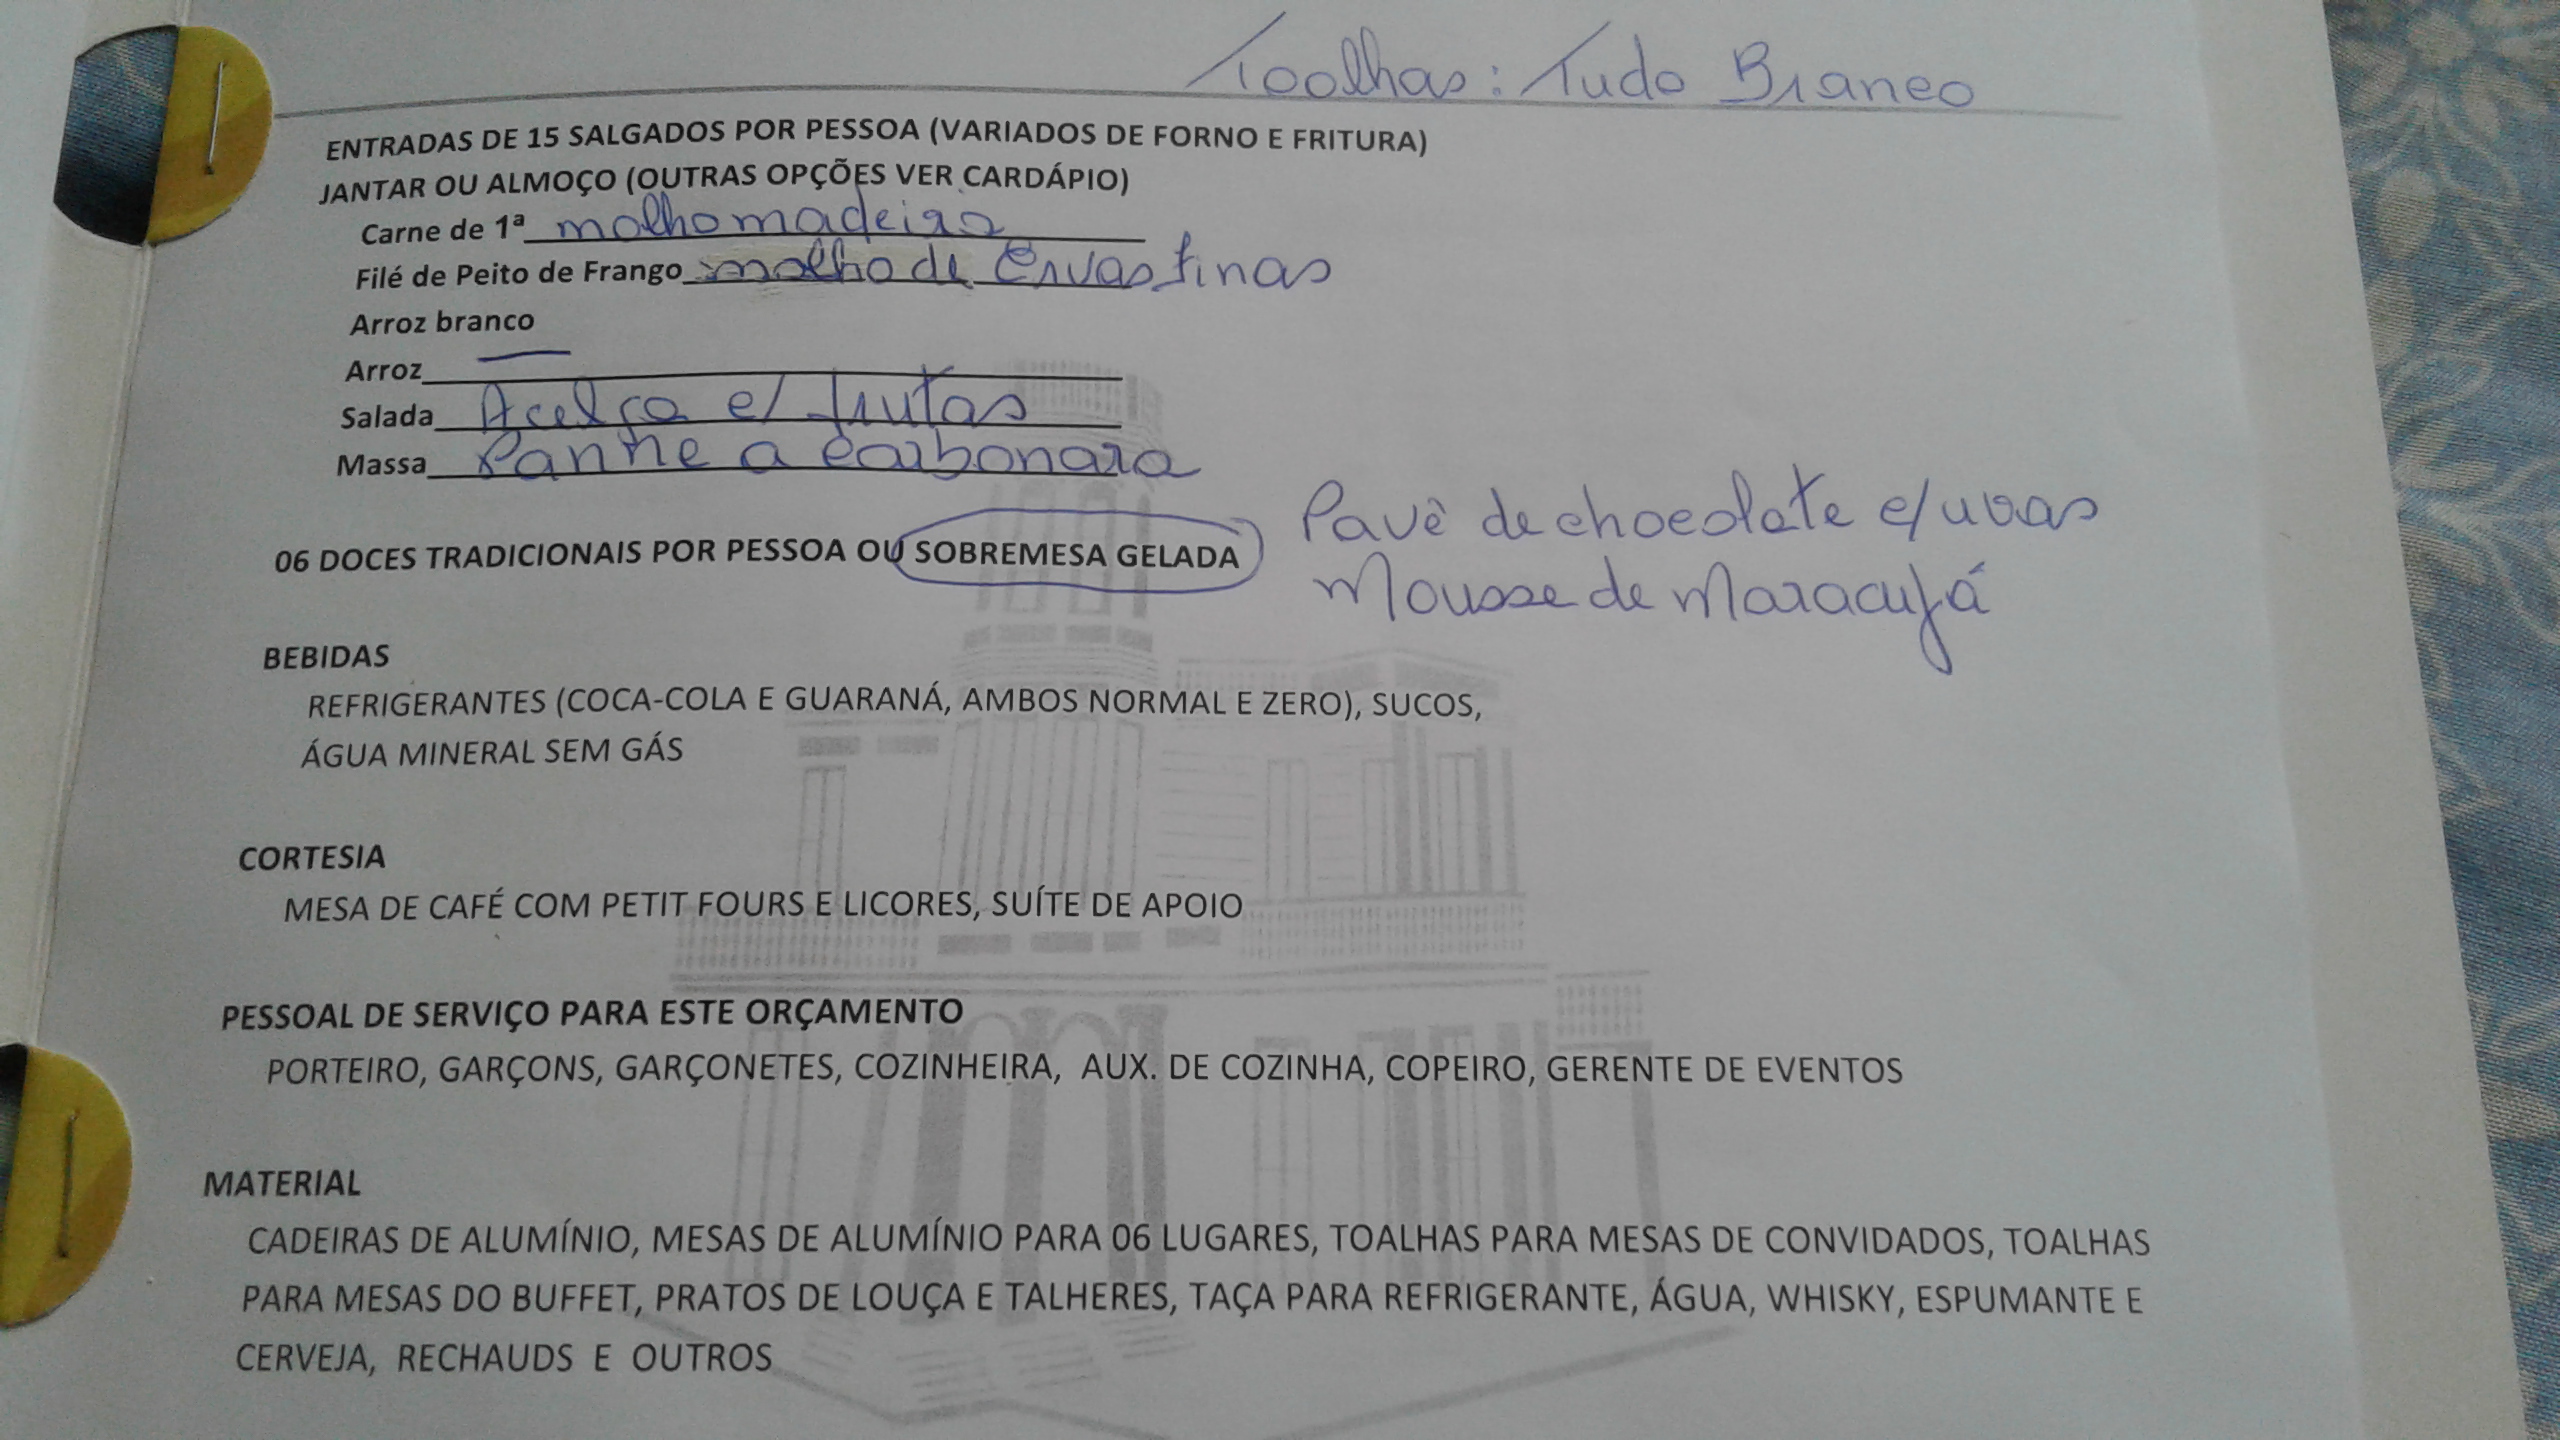 Toalhas: Tudo Branco
ENTRADAS DE 15 SALGADOS POR PESSOA (VARIADOS DE FORNO E FRITURA)
JANTAR OU ALMOÇO (OUTRAS OPÇÕES VER CARDÁPIO)
Carne de 1ª molho madeira
Filé de Peito de Frango molho de Ervas finas
Arroz branco
Arroz —
Salada Acelga c/ frutas
Massa Panne a carbonara
06 DOCES TRADICIONAIS POR PESSOA OU SOBREMESA GELADA
Pavê de chocolate c/ uvas
Mousse de Maracujá
BEBIDAS
REFRIGERANTES (COCA-COLA E GUARANÁ, AMBOS NORMAL E ZERO), SUCOS,
ÁGUA MINERAL SEM GÁS
CORTESIA
MESA DE CAFÉ COM PETIT FOURS E LICORES, SUÍTE DE APOIO
PESSOAL DE SERVIÇO PARA ESTE ORÇAMENTO
PORTEIRO, GARÇONS, GARÇONETES, COZINHEIRA, AUX. DE COZINHA, COPEIRO, GERENTE DE EVENTOS
MATERIAL
CADEIRAS DE ALUMÍNIO, MESAS DE ALUMÍNIO PARA 06 LUGARES, TOALHAS PARA MESAS DE CONVIDADOS, TOALHAS
PARA MESAS DO BUFFET, PRATOS DE LOUÇA E TALHERES, TAÇA PARA REFRIGERANTE, ÁGUA, WHISKY, ESPUMANTE E
CERVEJA, RECHAUDS E OUTROS